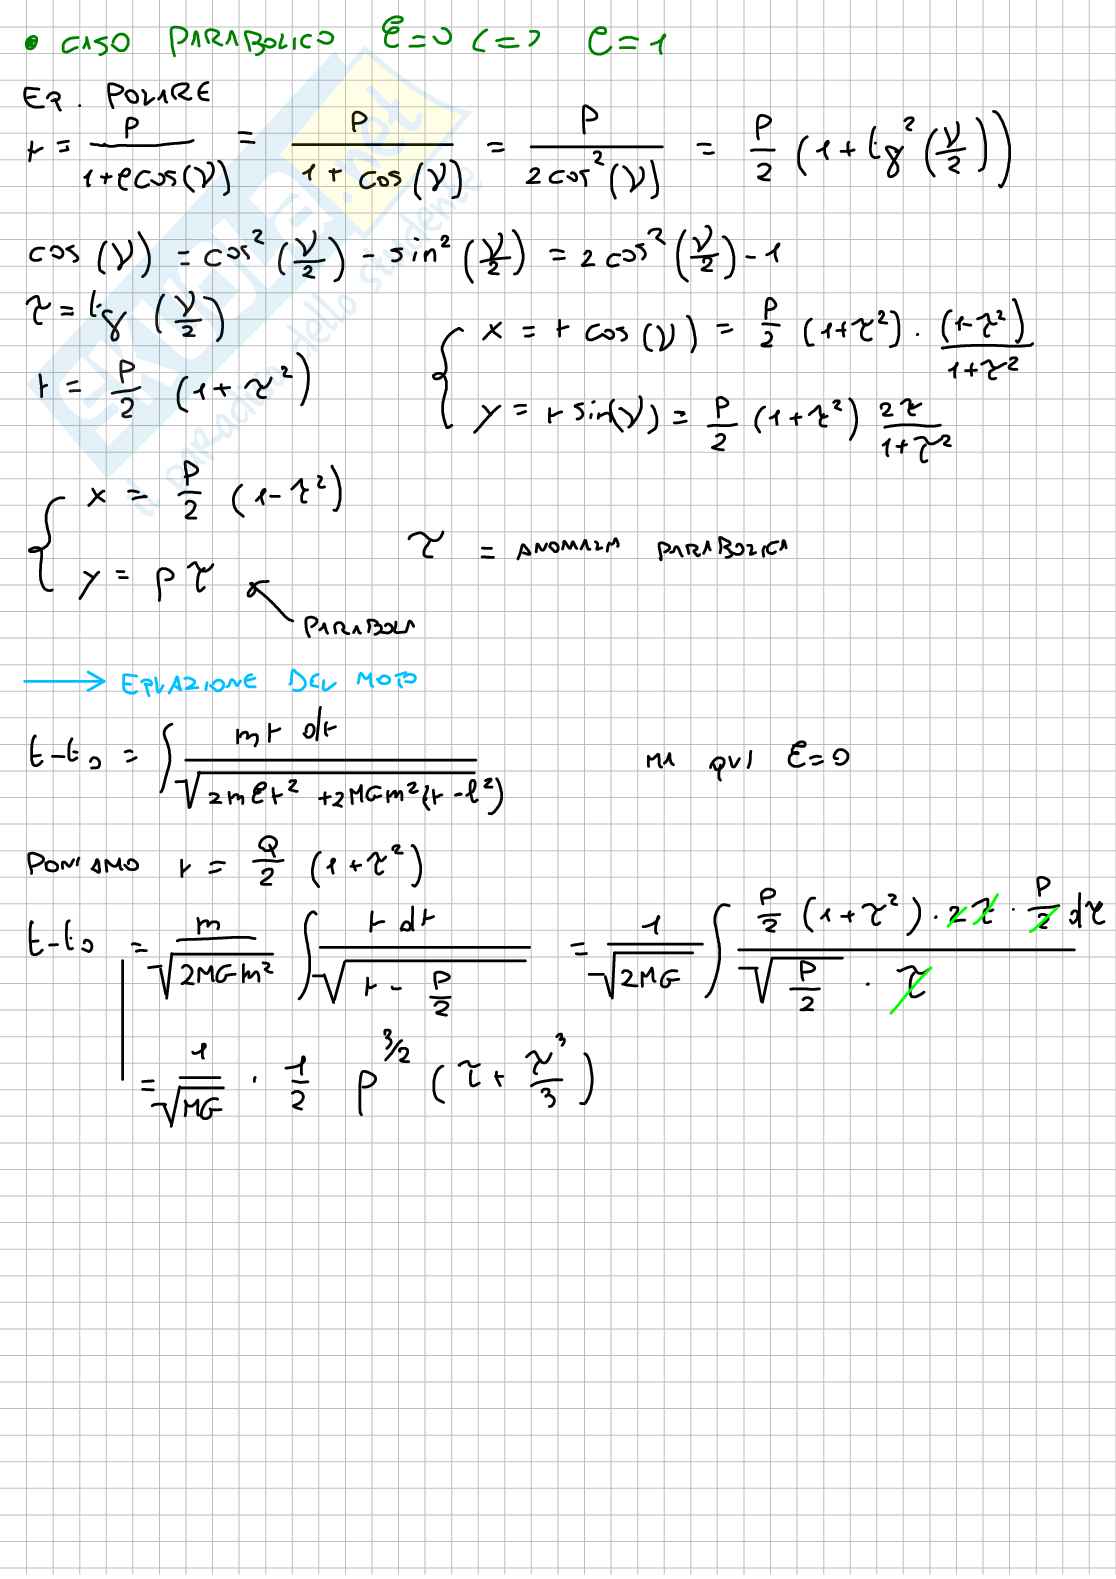 • CASO PARABOLICO Ɛ=0 <=> e=1
EQ. POLARE
r = p/(1+e cos(ν)) = p/(1+cos(ν)) = p/(2cos²(ν)) = p/2 (1+tg²(ν/2))
cos(ν) = cos²(ν/2) - sin²(ν/2) = 2cos²(ν/2) - 1
τ = tg(ν/2)
r = p/2 (1+τ²)
{ x = r cos(ν) = p/2 (1+τ²) · (1-τ²)/(1+τ²)
y = r sin(ν) = p/2 (1+τ²) 2τ/(1+τ²)
{ x = p/2 (1-τ²)
y = pτ
PARABOLA
τ = ANOMALIA PARABOLICA
→ EQUAZIONE DEL MOTO
t-t₀ = ∫ m r dr / √(2mƐr² + 2MGm²(r-l²)) MA QUI Ɛ=0
PONIAMO r = Q/2 (1+τ²)
t-t₀ = m/√(2MGm²) ∫ r dr/√(r - p/2) = 1/√(2MG) ∫ p/2 (1+τ²) · 2τ · p/2 dτ / (√(p/2) · τ)
= 1/√(MG) · 1/2 p^(3/2) (τ + τ³/3)
SKUOLA.net
il paradiso dello studente